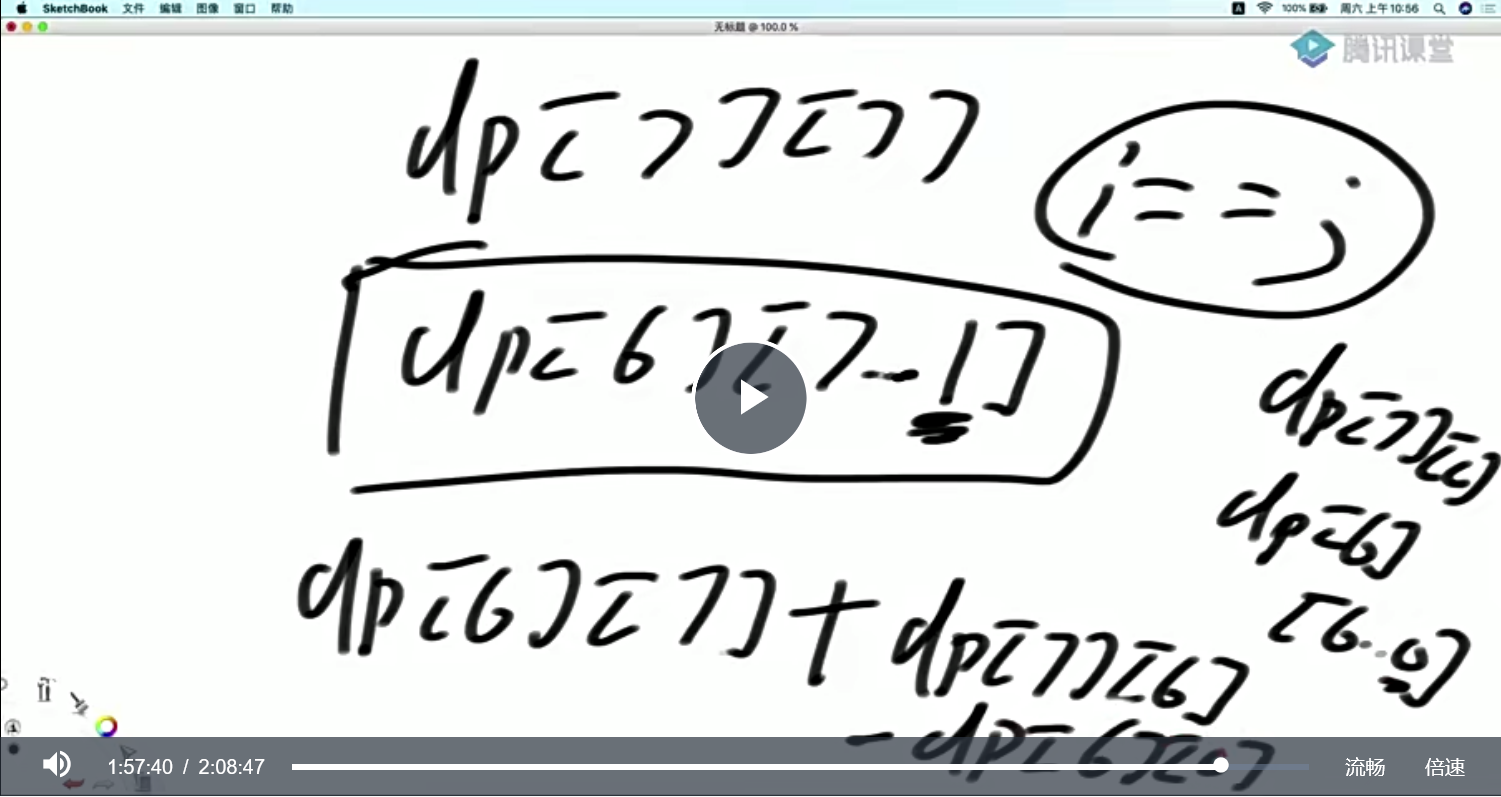 SketchBook 文件 编辑 图像 窗口 帮助
A 100% 周六 上午10:56
无标题 @ 100.0 %
腾讯课堂
dp[7][7]
i==j
dp[6][7..1]
dp[7][6]
dp[6]
[6..0]
dp[6][7]+dp[7][6]
-dp[6][0]
1:57:40 / 2:08:47 流畅 倍速